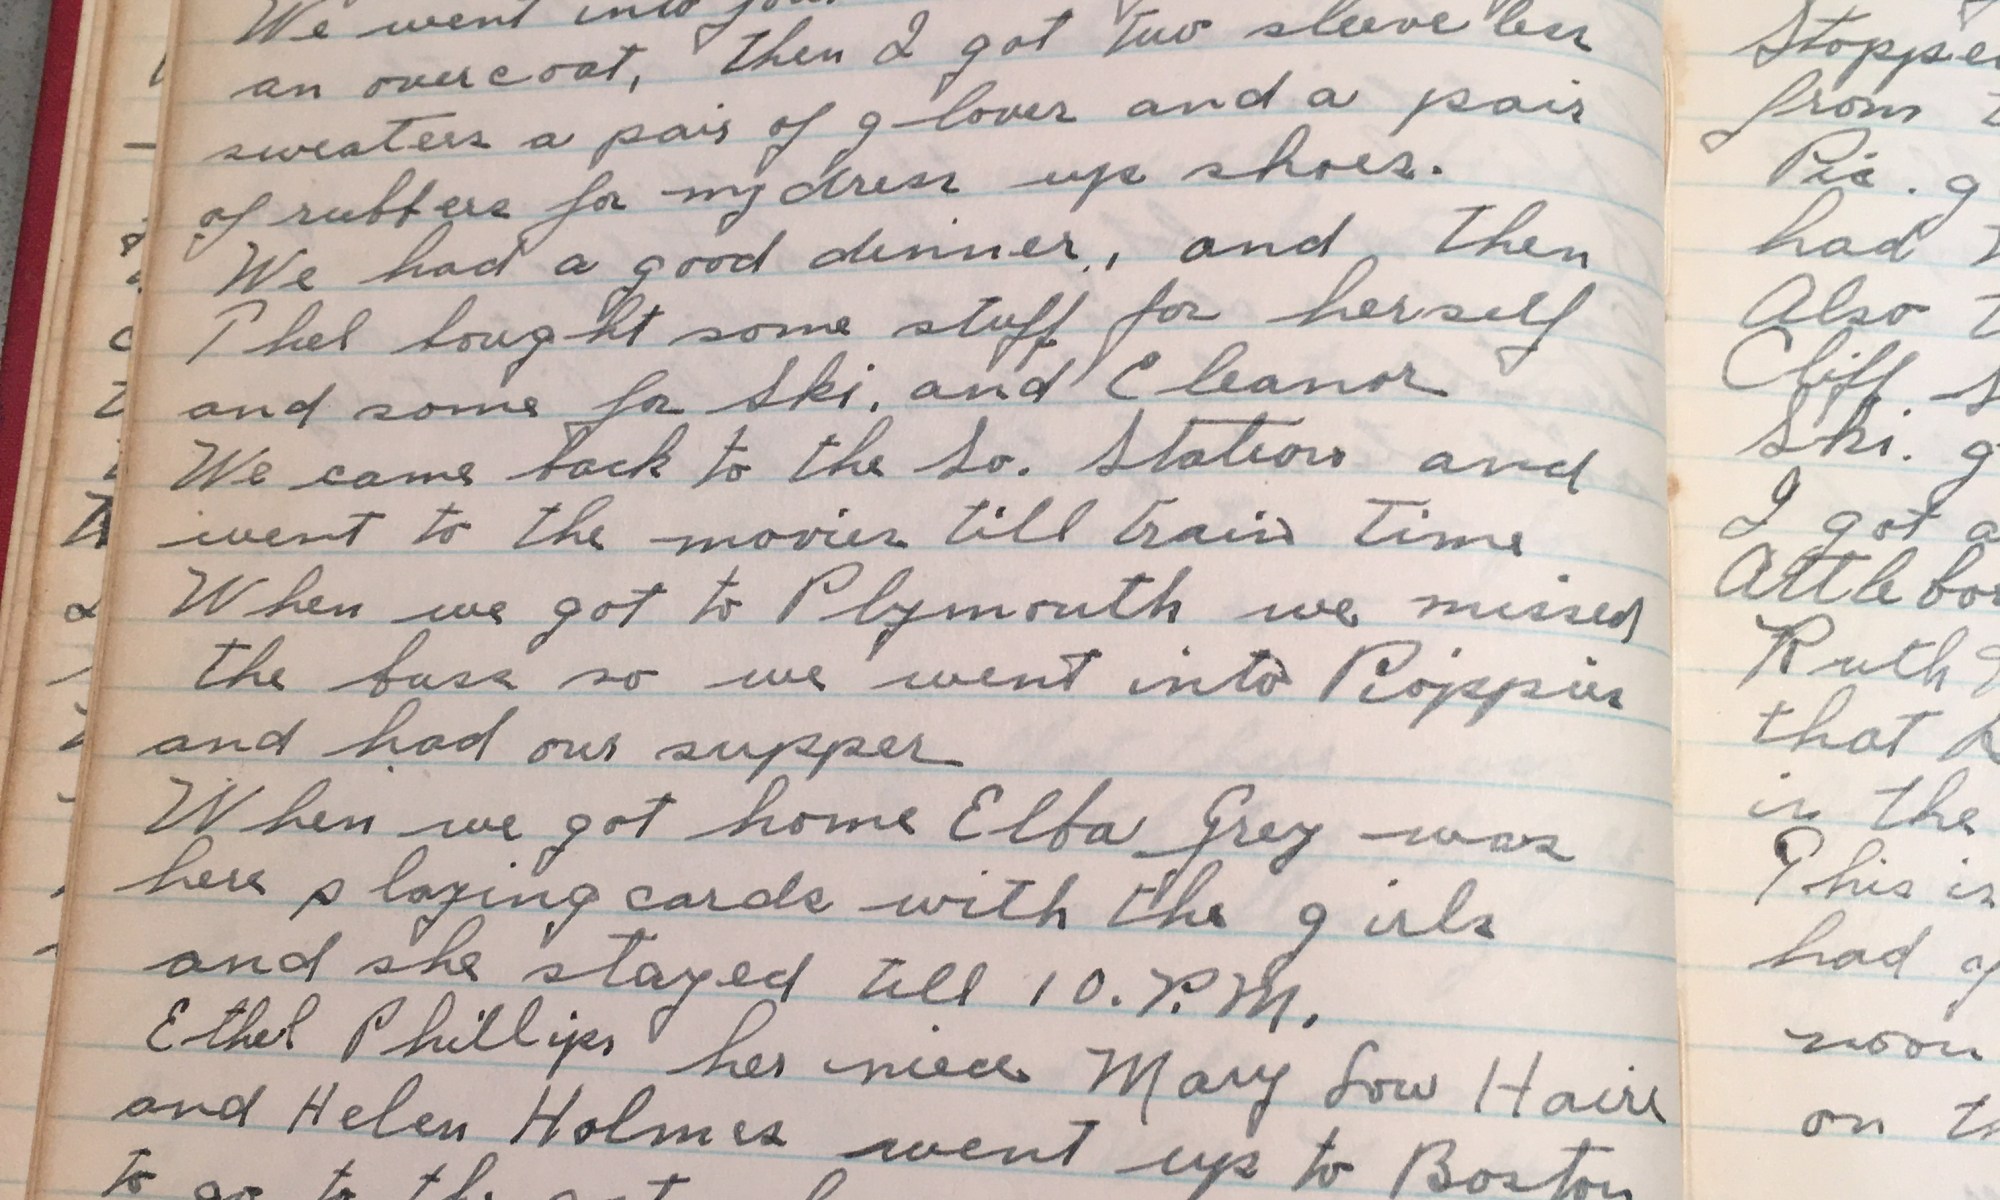 We went into
an overcoat, then I got two sleeve less
sweaters a pair of gloves and a pair
of rubbers for my dress up shoes.
We had a good dinner, and then
Phel bought some stuff for herself
and some for Ski, and Eleanor
We came back to the So. Station and
went to the movies till train time
When we got to Plymouth we missed
the buss so we went into
and had our supper
When we got home Elba Grey was
here playing cards with the girls
and she stayed till 10. P.M.
Ethel Phillips her niece Mary Low
and Helen Holmes went up to Boston
to go to the
Stopped
from
Pic.
had
Also
Cliff
Ski.
I got a
Ruth
that
in the
This is
had
noon
on